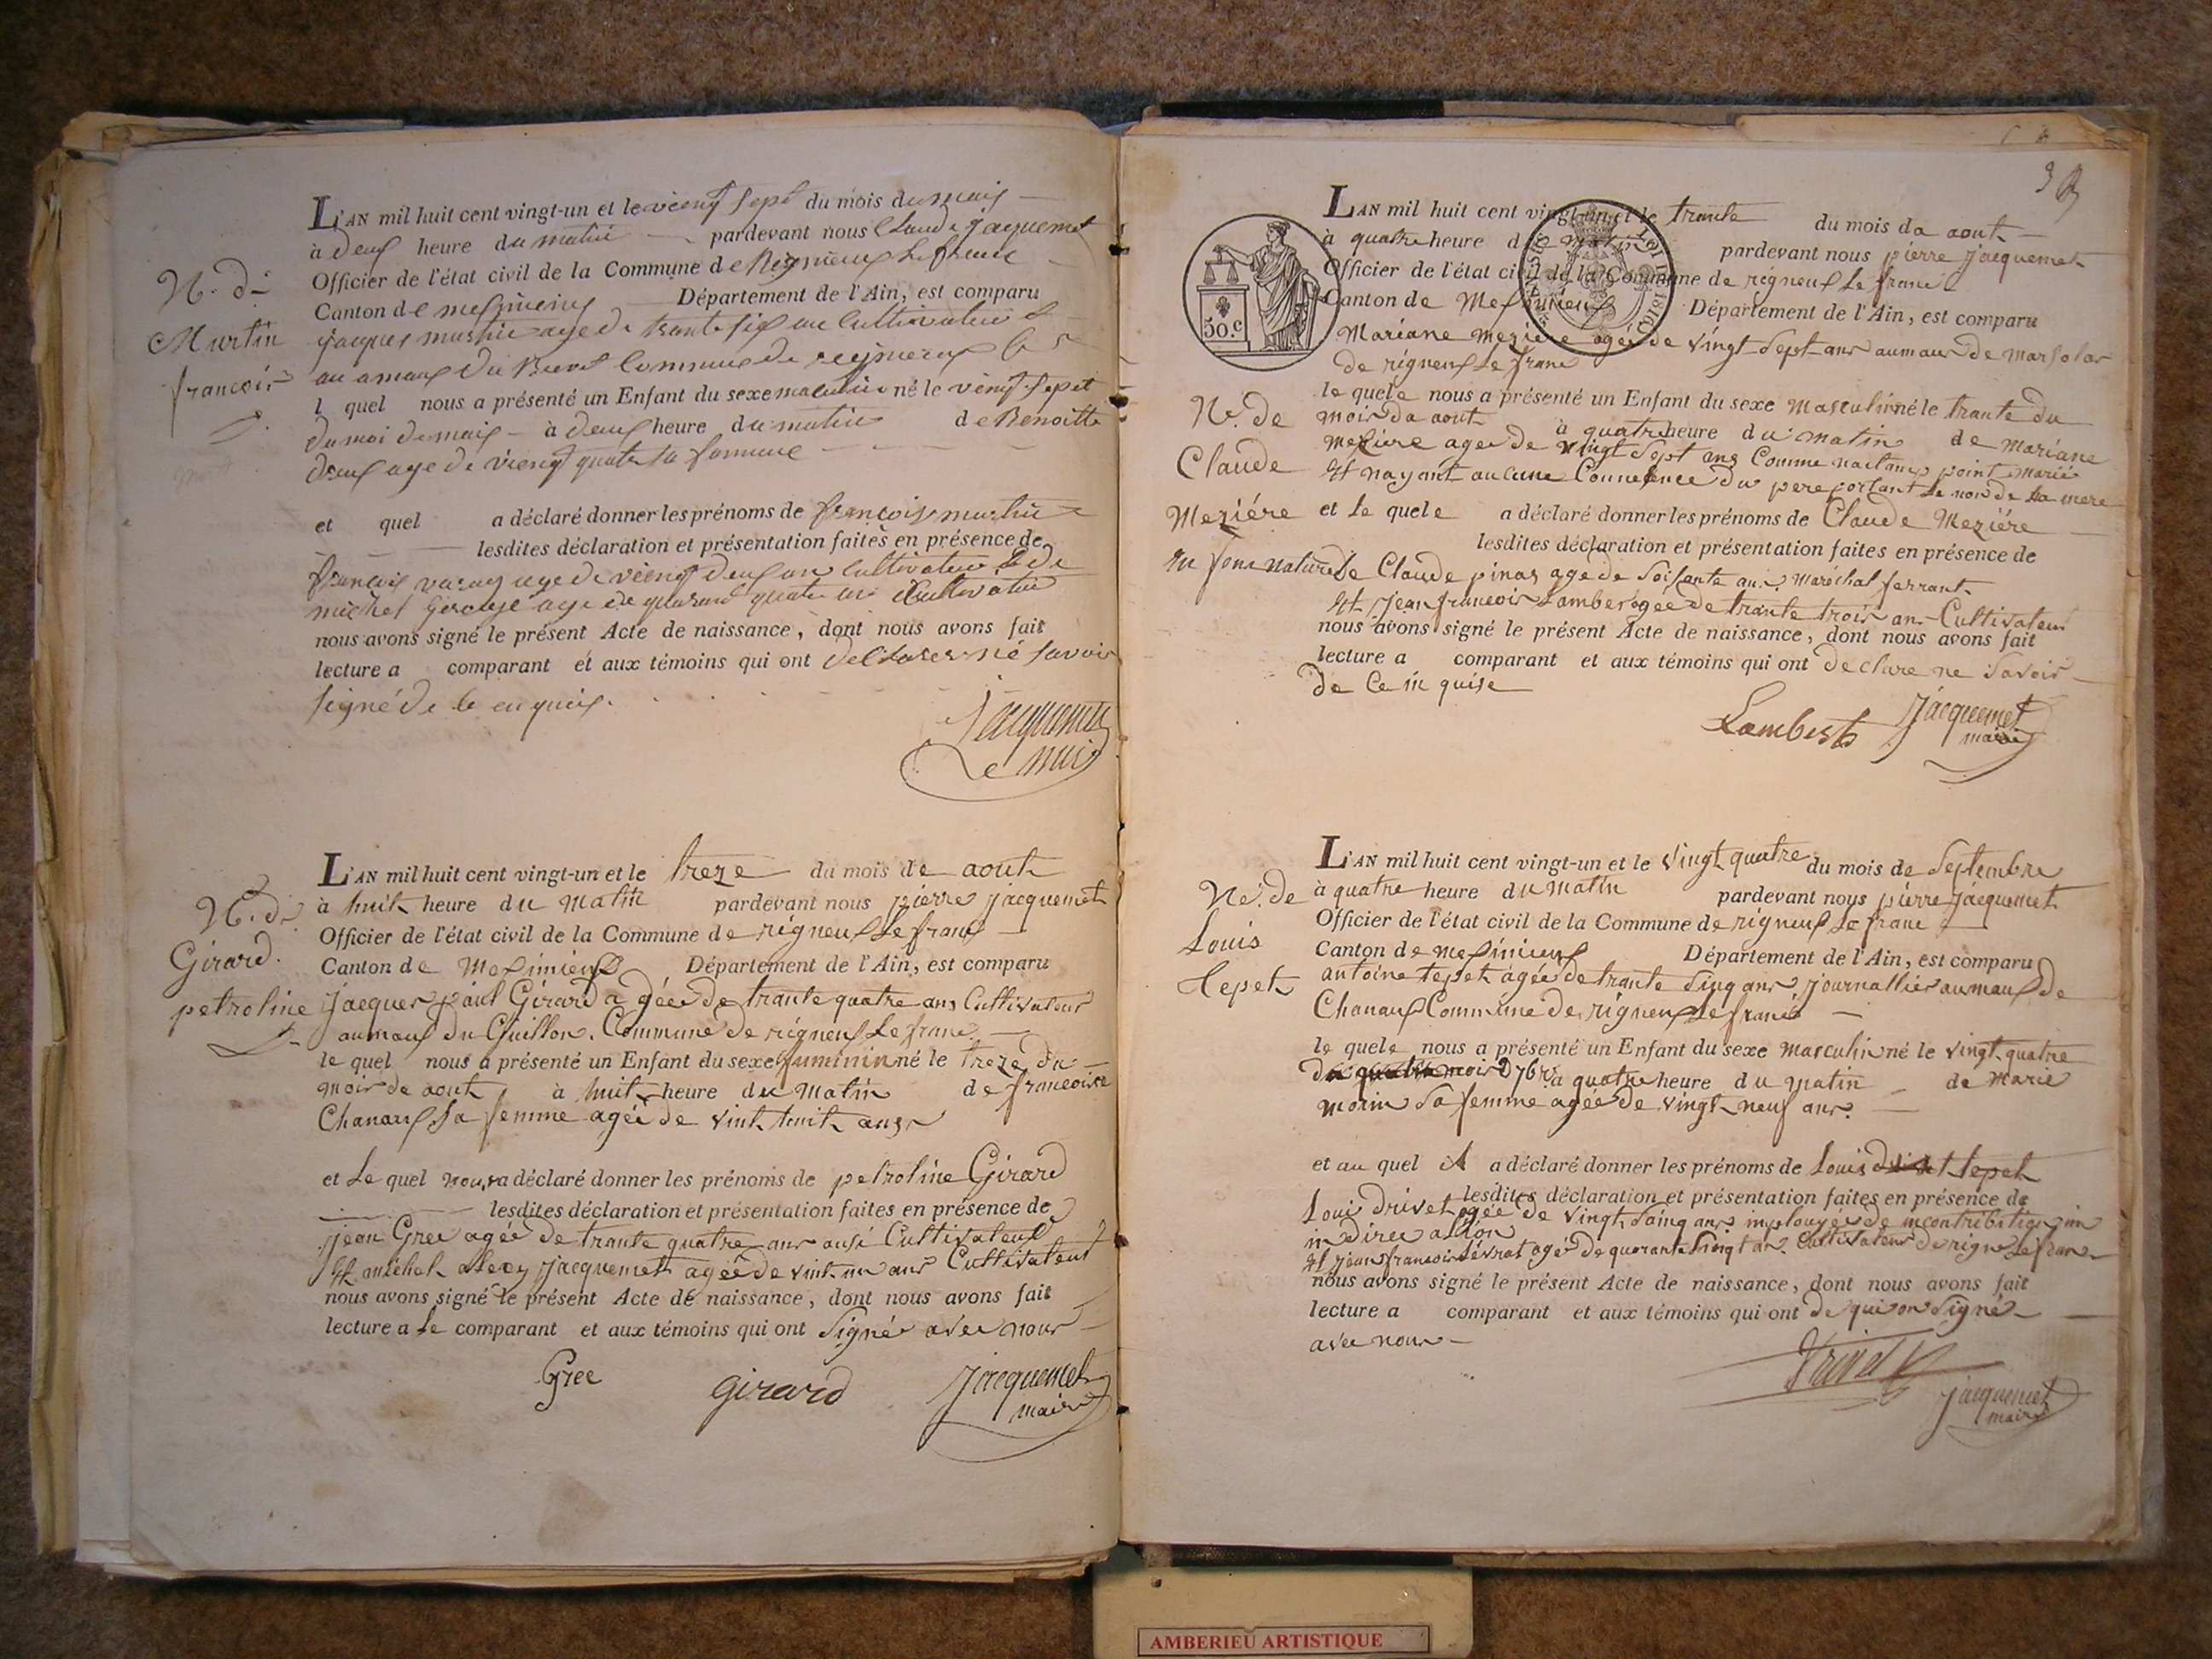 L'AN mil huit cent vingt-un et le viengt sept du mois du mais
à deux heure du matin pardevant nous Claude jacquemet
Officier de l'état civil de la Commune de Rignieux le franc
Canton de meximieux Département de l'Ain, est comparu
N. de
Martin
francois
jacques martin age de trante six an Cultivateur
au amaux du Commune de
l quel nous a présenté un Enfant du sexe masculin né le viengt sepet
du moi de mais à deux heure du matin de Benoitte
deux age de viengt quatre sa famme
et quel a déclaré donner les prénoms de françois martin
lesdites déclaration et présentation faites en présence de
francois age de viengt deux an cultivateur
michel age de quarante quatre an Cultivateur
nous avons signé le présent Acte de naissance, dont nous avons fait
lecture a comparant et aux témoins qui ont declarer né savoir
signé de ce en quis.
Jacquemet
Le mair
L'AN mil huit cent vingt-un et le treze du mois de aout
N. de
Girard.
petroline
à huit heure du matin pardevant nous pierre jacquemet
Officier de l'état civil de la Commune de rigneux Le franc
Canton de Meximieux Département de l'Ain, est comparu
jacques paul Girard agée de trante quatre ans Cultivateur
aumaux du Guillon. Commune de rigneux Le franc
le quel nous a présenté un Enfant du sexe fuminin né le treze du
mois de aout à huit heure du matin de francoise
Chanaux Sa femme agée de vint huit ans
et Le quel nous a déclaré donner les prénoms de petroline Girard
lesdites déclaration et présentation faites en présence de
jean Gree agée de trante quatre ans ausi Cultivateur
Et michel alexy jacquemet agée de vint un ans Cultivateur
nous avons signé le présent Acte de naissance, dont nous avons fait
lecture a Le comparant et aux témoins qui ont Signé avec nous
Gree girard jacquemet
maire
3
50.C
LOI 1816
L'AN mil huit cent vingt-un et le trante du mois da aout
à quatre heure du matin pardevant nous pierre jacquemet
Officier de l'état civil de la Commune de rigneux Le franc
Canton de Meximieux Département de l'Ain, est comparu
Mariane meziere agée de vingt Sept ans aumaux de
de rigneux Le franc
Ne. de
Claude
Meziére
naturele
le quele nous a présenté un Enfant du sexe Masculin né le trante du
mois da aout à quatre heure du matin de Mariane
meziere agee de vingt Sept ans Comme naitans point marié
Et nayant aucune Connesence du pere portant Le nom de La mere
et Le quele a déclaré donner les prénoms de Claude Meziére
lesdites déclaration et présentation faites en présence de
De Claude pinas age de Soisante ans Maréchal ferrant
Et jean francois Lamber agée de trante trois ans Cultivateur
nous avons signé le présent Acte de naissance, dont nous avons fait
lecture a comparant et aux témoins qui ont declare ne Savoir
de Ce in quise
Lambert Jacquemet
maire
L'AN mil huit cent vingt-un et le Vingt quatre du mois de Septembre
Ne. de
Louis
tepet
à quatre heure du matin pardevant nous pierre jacquemet
Officier de l'état civil de la Commune de rigneux Le franc
Canton de meximieux Département de l'Ain, est comparu
antoine tepet agée de trante Sinq ans journallier aumaux de
Chanaux Commune de rigneux Le franc
le quele nous a présenté un Enfant du sexe masculin né le vingt quatre
du mois D 7bre à quatre heure du matin de Marie
morin Sa femme agée de vingt neuf ans.
et au quel il a déclaré donner les prénoms de Louis tepet
lesdites déclaration et présentation faites en présence de
Loui drivet agée de vingt Saing ans
Et jean francois agé de quarante ans Cultivateur de
nous avons signé le présent Acte de naissance, dont nous avons fait
lecture a comparant et aux témoins qui ont de qui on Signé
avec nous
Drivet
jacquemet
maire
AMBERIEU ARTISTIQUE